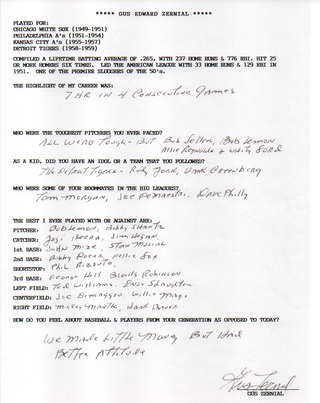 ***** GUS EDWARD ZERNIAL *****
PLAYED FOR:
CHICAGO WHITE SOX (1949-1951)
PHILADELPHIA A's (1951-1954)
KANSAS CITY A's (1955-1957)
DETROIT TIGERS (1958-1959)
COMPILED A LIFETIME BATTING AVERAGE OF .265, WITH 237 HOME RUNS & 776 RBI. HIT 25
OR MORE HOMERS SIX TIMES. LED THE AMERICAN LEAGUE WITH 33 HOME RUNS & 129 RBI IN
1951. ONE OF THE PREMIER SLUGGERS OF THE 50's.
THE HIGHLIGHT OF MY CAREER WAS:
7 HR in 4 Consecutive Games
WHO WERE THE TOUGHEST PITCHERS YOU EVER FACED?
All were Tough - But Bob Feller, Bob Lemon
Allie Reynolds & Whitey Ford
AS A KID, DID YOU HAVE AN IDOL OR A TEAM THAT YOU FOLLOWED?
The Detroit Tigers - Rudy York, Hank Greenberg
WHO WERE SOME OF YOUR ROOMMATES IN THE BIG LEAGUES?
Tom Morgan, Joe DeMaestri, Dave Philly
THE BEST I EVER PLAYED WITH OR AGAINST ARE:
PITCHER: Bob Lemon, Bobby Shantz
CATCHER: Yogi Berra, Jim Hegan
1st BASE: John Mize, Stan Musial
2nd BASE: Bobby Doerr, Nellie Fox
SHORTSTOP: Phil Rizzuto,
3rd BASE: George Kell Brooks Robinson
LEFT FIELD: Ted Williams, Enos Slaughter
CENTERFIELD: Joe Dimaggio, Willie Mays
RIGHT FIELD: Mickey Mantle, Hank Bauer
HOW DO YOU FEEL ABOUT BASEBALL & PLAYERS FROM YOUR GENERATION AS OPPOSED TO TODAY?
We Made Little Money But Had
Better Attitude
Gus Zernial
GUS ZERNIAL